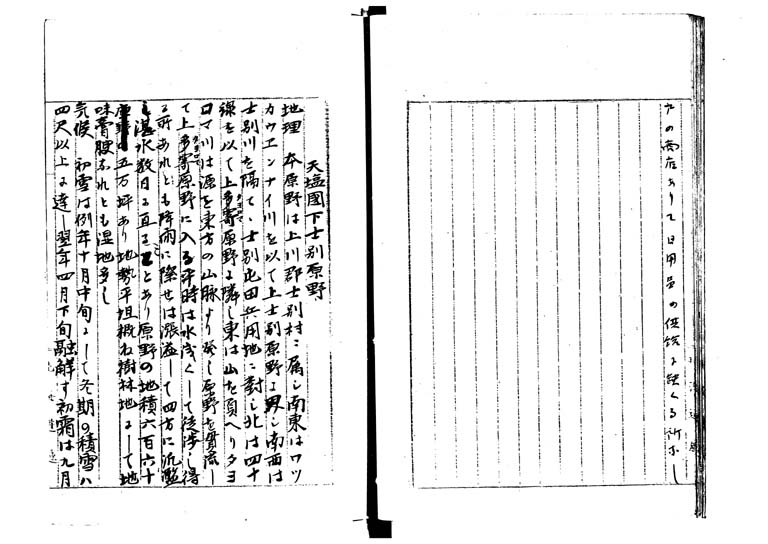 ケの商店ありて日用品の供給に缺くる所なし
天塩國下士別原野
地理 本原野は上川郡士別村に属し南東はワッ
カウエンナイ川を以て上士別原野に界し南西は
士別川を隔て、士別屯田兵用地に對し北は四十
線を以て上多寄原野に隣し東は山を負へりタヨ
ロマ川は源を東方の山脉より発し原野を貫流し
て上多寄原野に入る平時は水浅くして徒渉し得
る所あれとも降雨に際せは漲溢して四方に氾濫
し湛水数日に亘ることあり原野の地積六百六十
五万坪あり地勢平坦概ね樹林地にして地
味膏腴なれとも湿地多し
気候 初雪は例年十月中旬にして冬期の積雪ハ
四尺以上に達し翌年四月下旬融解す初霜は九月